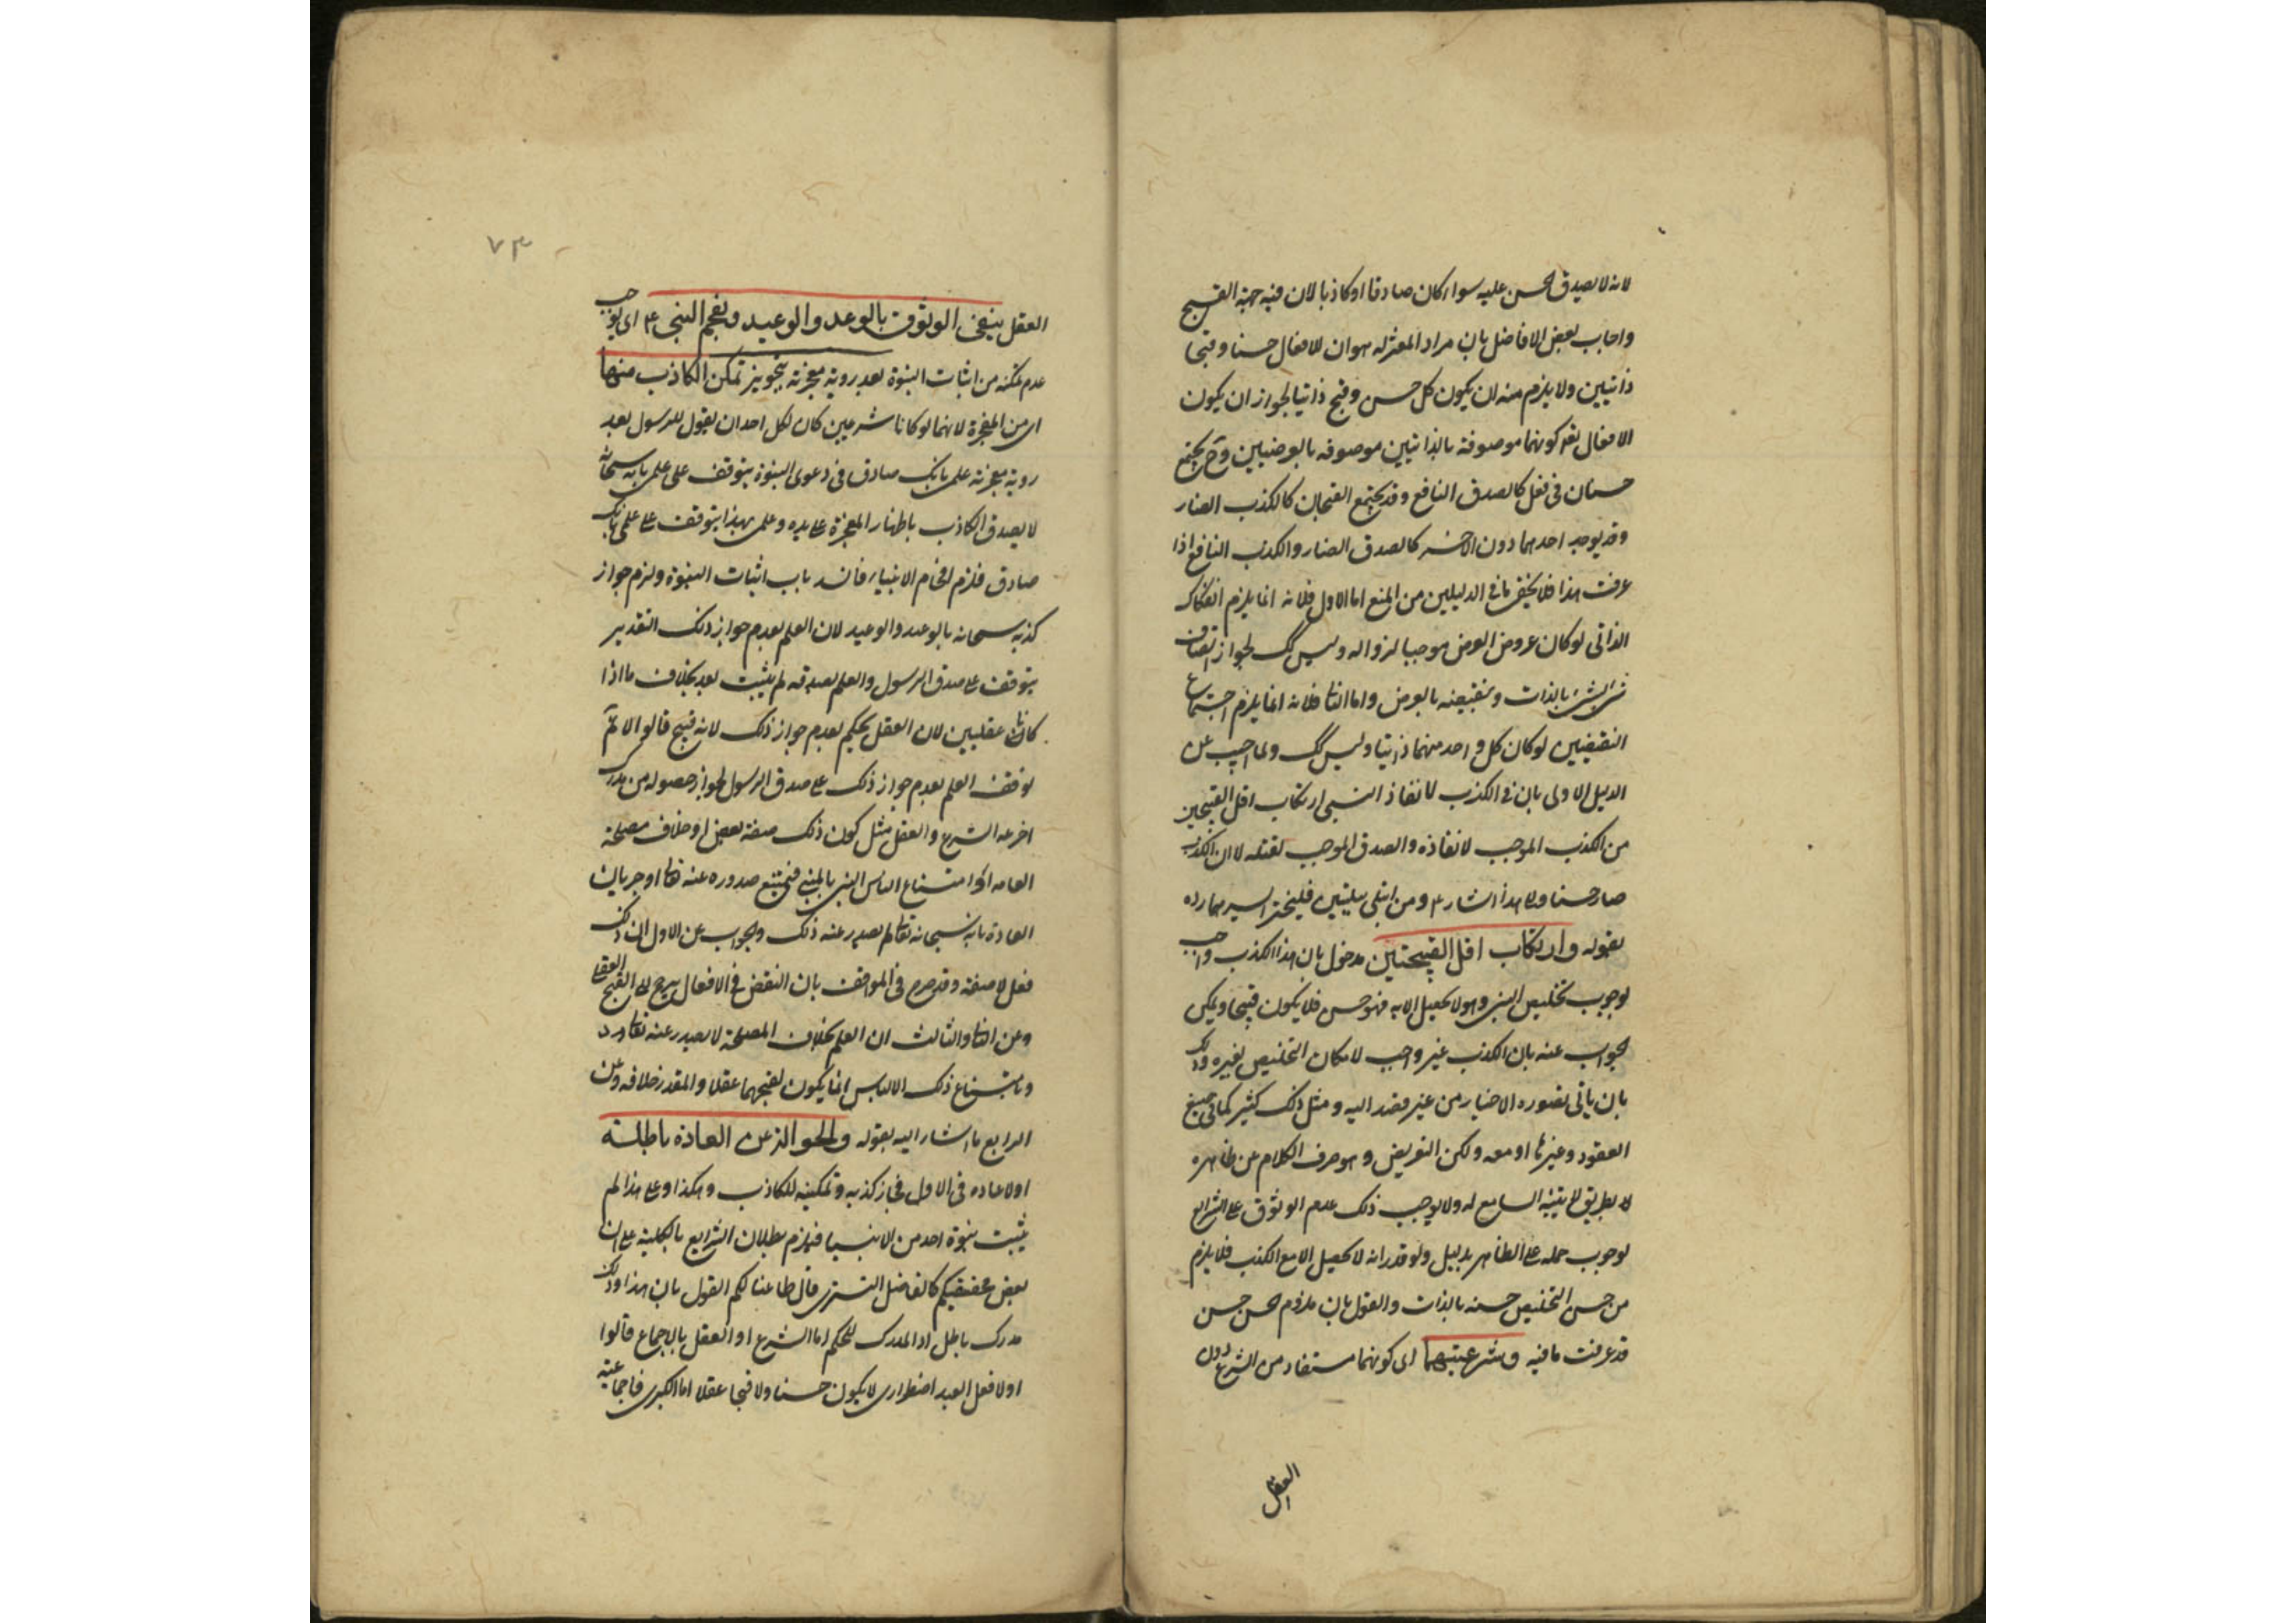 لانه لا يصدق الحسن عليه سواء كان صادقا او كاذبا لان فيه جهة القبح
واجاب بعض الافاضل بان مراد المعتزله هو ان للافعال حسنا وقبحا
ذاتيين ولا يلزم منه ان يكون كل حسن وقبح ذاتيا لجواز ان يكون
الافعال بعد كونهما موصوفة بالذاتيين موصوفه بالعرضيين وح يجتمع
حسنان فى فعل كالصدق النافع وقد يجتمع القبحان كالكذب الضار
وقد يوجد احدهما دون الاخر كالصدق الضار والكذب النافع اذا
عرفت هذا فلا يخفى ما فى الدليلين من المنع اما الاول فلانه انما يلزم انفكاك
الذاتى لو كان عروض العرض موجبا لزواله وليس كك لجواز اتصاف
شىء بشىء بالذات وبنقيضه بالعرض واما الثانى فلانه انما يلزم اجتماع
النقيضين لو كان كل واحد منهما ذاتيا وليس كك ولما اجيب عن
الدليل الاولى بان فى الكذب لانقاذ النبى ارتكاب اقل القبيحين
من الكذب الموجب لانقاذه والصدق الموجب لقتله لا ان الكذب
صار حسنا ولى هذا اشار ومن ابتلى ببليتين فليختر ايسرهما رده
بقوله وارتكاب اقل القبيحتين مدخول بان هذا الكذب واجب
لوجوب تخليص النبى وهو لا يحصل الا به فهو حسن فلا يكون قبيحا ويمكن
الجواب عنه بان الكذب غير واجب لامكان التخليص بغيره وذلك
بان ياتى بصوره الاخبار من غير قصد اليه ومثل ذلك كثير كما فى صيغ
العقود وغيرها او معه ولكن التعريض وهو صرف الكلام عن ظاهره
لا بطريق لا يتنبه السامع له ولا يوجب ذلك عدم الوثوق على الشرايع
لوجوب حمله على الظاهر بدليل ولو قدر انه لا يحصل الا مع الكذب فلا يلزم
من حسن التخليص حسنه بالذات والقول بان ملزوم الحسن حسن
قد عرفت ما فيه وشرعيتهما اى كونهما مستفاد من الشرع دون
العقل
٧٣
العقل ينفى الوثوق بالوعد والوعيد ويفحم النبى اى يوجب
عدم تمكنه من اثبات النبوة بعد روية معجزته بتجويز تمكن الكاذب منها
اى من المعجزة لانهما لو كانا شرعيين كان لكل احد ان يقول للرسول بعد
روية معجزته علمى بانك صادق فى دعوى النبوة يتوقف على علمى بانه سبحانه
لا يصدق الكاذب باظهار المعجزة على يده وعلمى بهذا يتوقف على علمى بانك
صادق فلزم افحام الانبياء فانسد باب اثبات النبوة ولزم جواز
كذبه سبحانه بالوعد والوعيد لان العلم بعدم جواز ذلك التقدير
يتوقف على صدق الرسول والعلم بصدقه لم يثبت بعد بخلاف ما اذا
كانا عقليين لان العقل يحكم بعدم جواز ذلك لانه قبيح قالوا لا نم
توقف العلم بعدم جواز ذلك على صدق الرسول لجواز حصوله من مدرك
اخر غير الشرع والعقل مثل كون ذلك صفة نقص او خلاف مصلحة
العامه او امتناع الباس النبى بالمتنبى فيمتنع صدوره عنه تعالى او جريان
العادة بانه سبحانه تعالى لم يصدر عنه ذلك والجواب عن الاول ان ذلك
فعل لا صفة وقد صرح فى المواقف بان النقص فى الافعال يرجع الى القبح العقلى
وعن الثانى والثالث ان العلم بخلاف المصلحة لا يصدر عنه تعالى ورد
وبامتناع ذلك الالباس انما يكون لقبحهما عقلا والمقدر خلافه وعن
الرابع ما اشار اليه بقوله والحوالة عن العادة باطلة
اولا عاده فى الاول فجاز كذبه وتمكينه للكاذب وهكذا وعلى هذا لم
يثبت نبوة احد من الانبيا فيلزم بطلان الشرايع بالكلية على ان
بعض محققيكم كالفاضل التسترى قال طاعنا لكم القول بان هذا وذلك
مدرك باطل اذ المدرك للحكم اما الشرع او العقل بالاجماع قالوا
اولا فعل العبد اضطرارى لا يكون حسنا ولا قبحا عقلا اما الكبرى فاجماعية